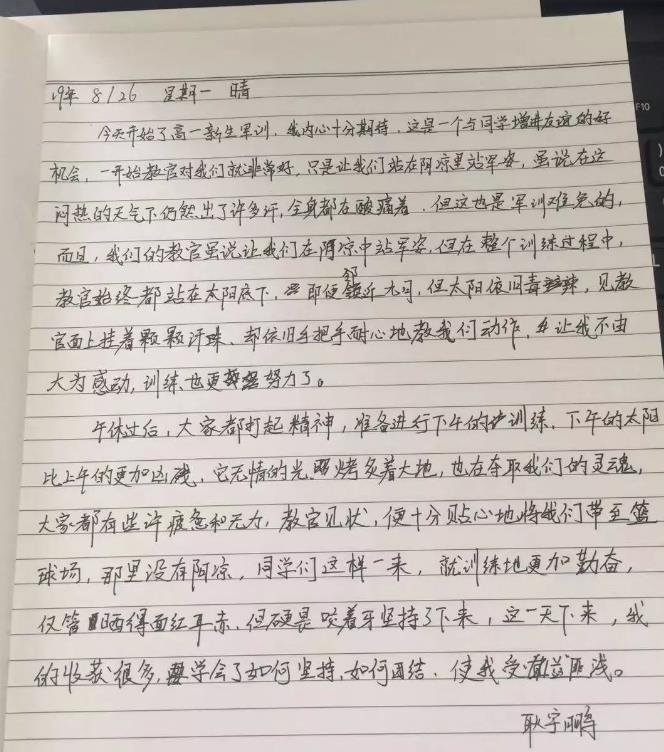 19年 8/26 星期一 晴
今天开始了高一新生军训，我内心十分期待，这是一个与同学增进友谊的好
机会，一开始教官对我们就非常好，只是让我们站在阴凉里站军姿，虽说在这
闷热的天气下仍然出了许多汗，全身都在酸痛着，但这也是军训难免的，
而且，我们的教官虽说让我们在阴凉中站军姿，但在整个训练过程中，
教官始终都站在太阳底下，即便邻近九月，但太阳依旧毒辣，见教
官面上挂着颗颗汗珠、却依旧手把手耐心地教我们动作，让我不由
大为感动，训练也更努力了。
午休过后，大家都打起精神，准备进行下午的训练，下午的太阳
比上午的更加凶残，它无情的光照烤炙着大地，也在夺取我们的灵魂，
大家都有些许疲惫和无力，教官见状，便十分贴心地将我们带至篮
球场，那里没有阴凉，同学们这样一来，就训练地更加勤奋，
仅管晒得面红耳赤，但硬是咬着牙坚持了下来，这一天下来，我
的收获很多，学会了如何坚持，如何团结，使我受益匪浅。
耿宇鹏